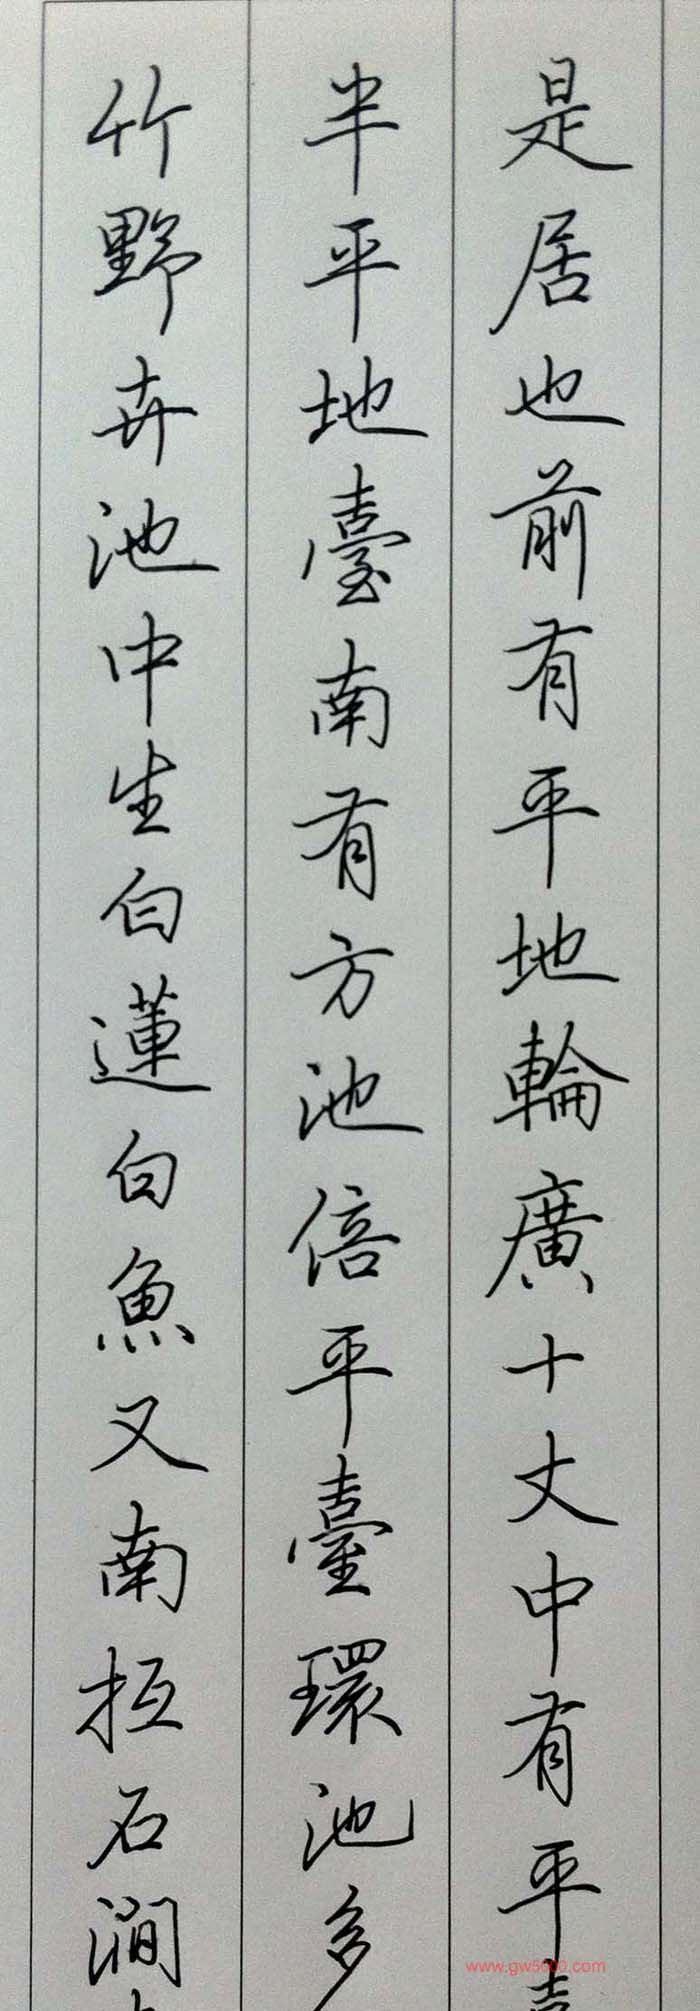 是居也前有平地輪廣十丈中有平臺
半平地臺南有方池倍平臺環池多
竹野卉池中生白蓮白魚又南抵石澗
www.gw5000.com